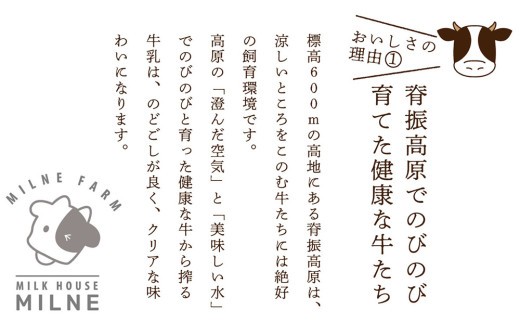 おいしさの
理由①
脊振高原でのびのび
育てた健康な牛たち
標高600mの高地にある脊振高原は、
涼しいところをこのむ牛たちには絶好
の飼育環境です。
高原の「澄んだ空気」と「美味しい水」
でのびのびと育った健康な牛から搾る
牛乳は、のどごしが良く、クリアな味
わいになります。
MILNE FARM
MILK HOUSE
MILNE